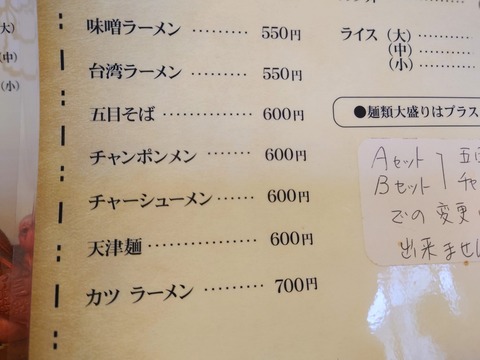 大)
(中)
(小)
味噌ラーメン ……… 550円
台湾ラーメン ……… 550円
五目そば ………… 600円
チャンポンメン …… 600円
チャーシューメン …… 600円
天津麺 …………… 600円
カツ ラーメン ……… 700円
ライス (大) ………
(中) ………
(小) ………
●麺類大盛りはプラス
Aセット 五
Bセット チャ
での変更
出来ません